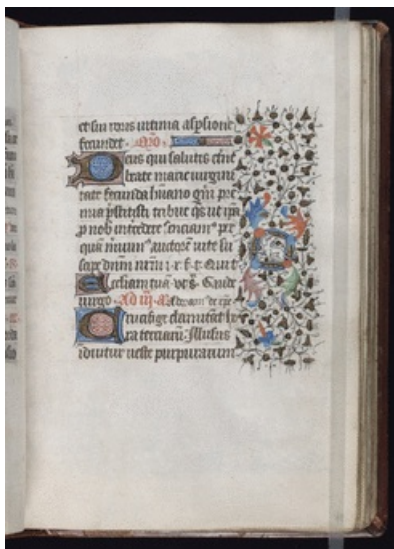 et sui roris intima aspsione
fecundet. Oro
Deus qui salutis et̄ne
beate marie uirgini
tate fecunda hūano gn̄i pre
mia p̄stitisti tribue q̄s ut ip̄a
p nob̄ int̄cedere senciam⁹ per
quā meruim⁹ auctorē uite sus
cipe dn̄m nr̄m
ecliam tuā
uirgo. Ad iii. a
Crucifige clamitāt ho
ra terciarū. Illusus
iduitur ueste purpurarum